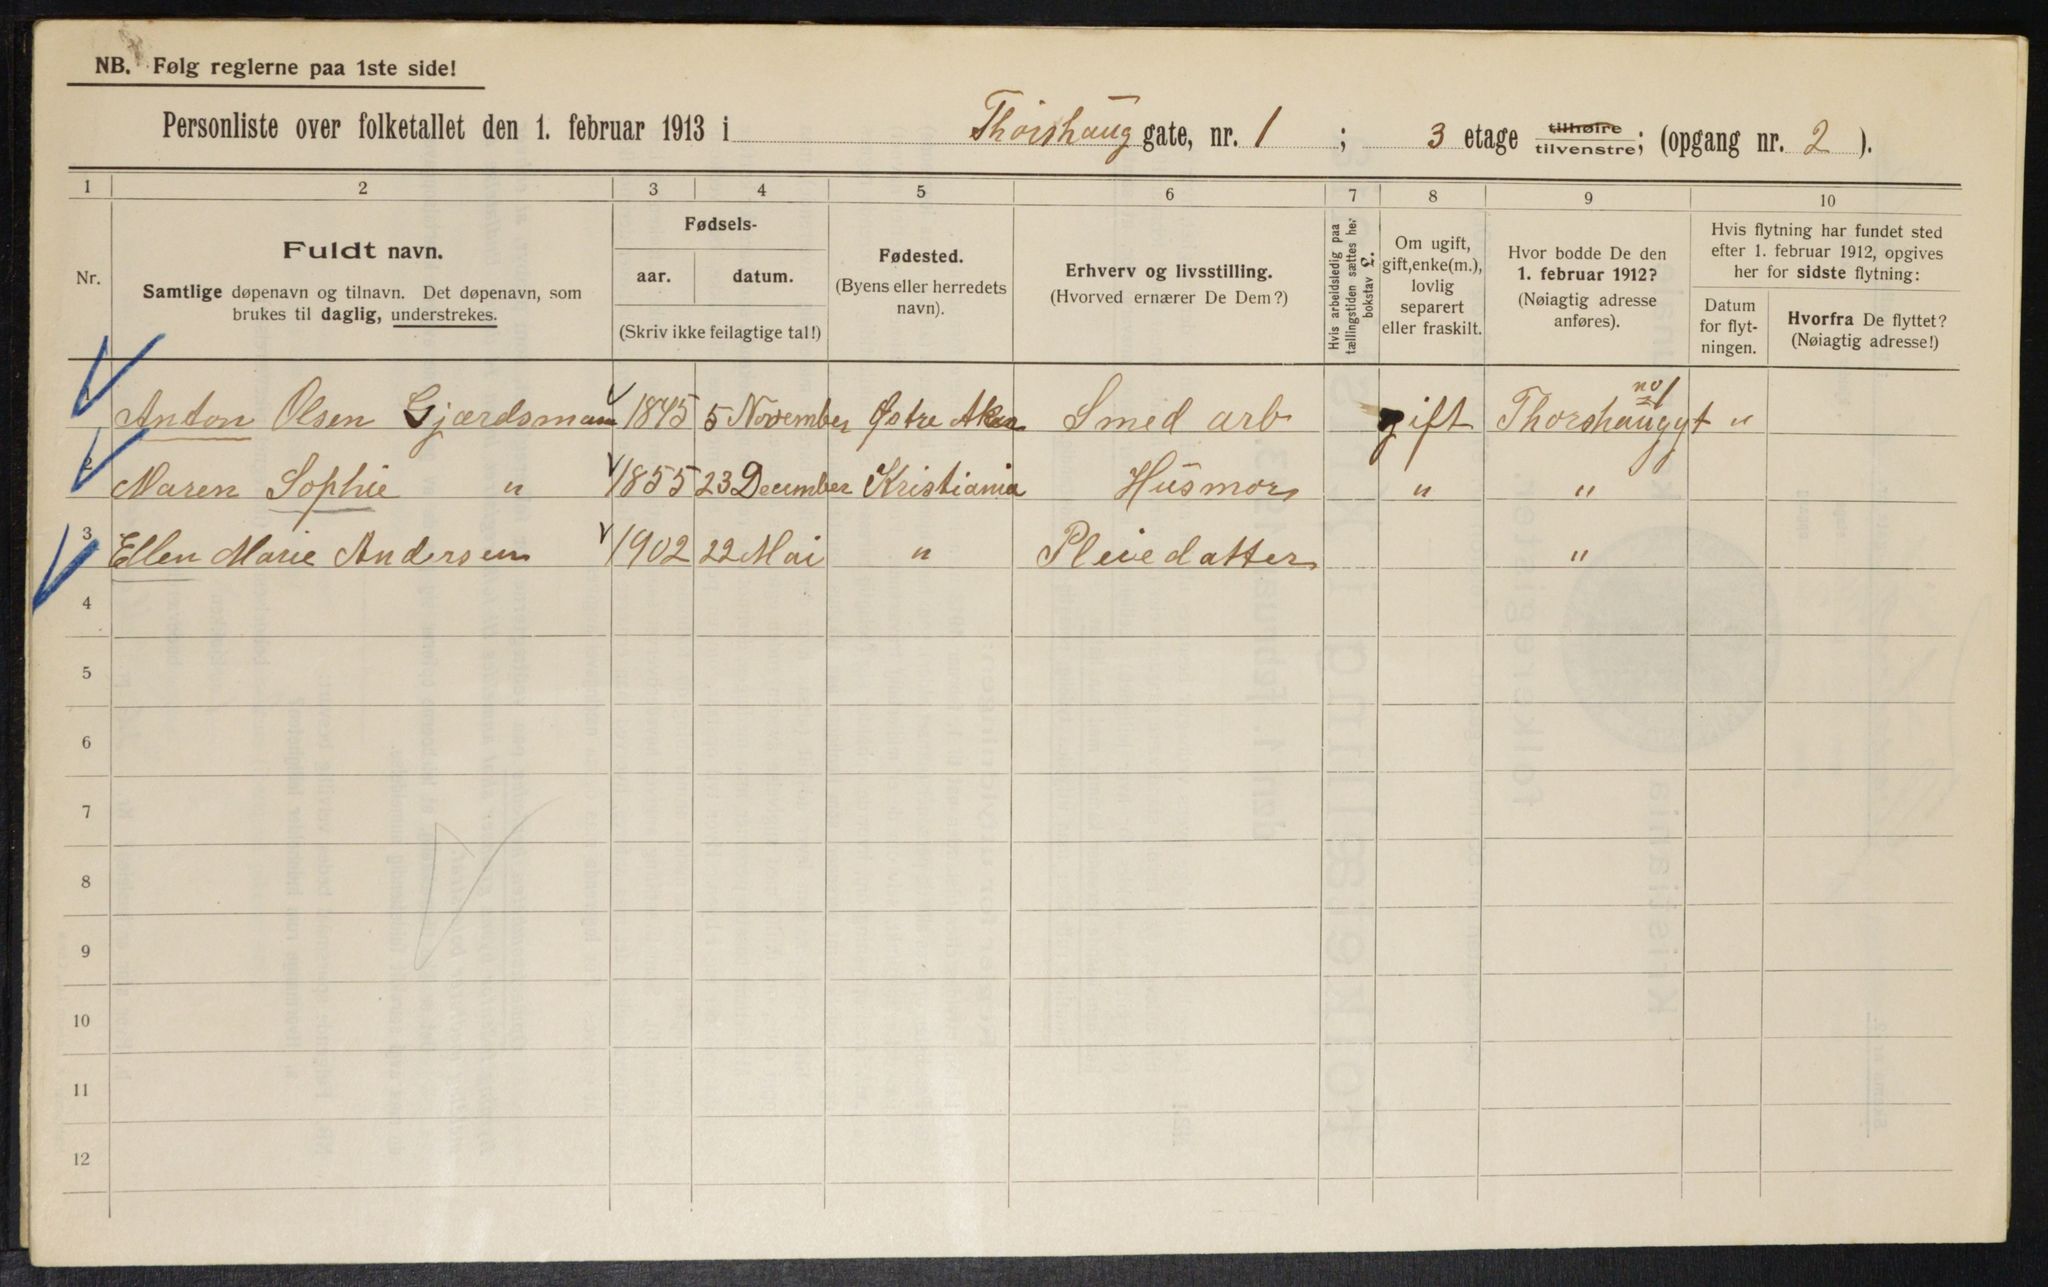 NB. Følg reglerne paa 1ste side!
Personliste over folketallet den 1. februar 1913 i Thorshaug gate, nr. 1 ; 3 etage tilhøire tilvenstre; (opgang nr. 2 ).
1 2 3 4 5 6 7 8 9 10
Nr.
Fuldt navn.
Samtlige døpenavn og tilnavn. Det døpenavn, som
brukes til daglig, understrekes.
Fødsels-
aar. datum.
(Skriv ikke feilagtige tal!)
Fødested.
(Byens eller herredets
navn).
Erhverv og livsstilling.
(Hvorved ernærer De Dem?)
Hvis arbeidsledig paa
tællingstiden sættes her
bokstav L.
Om ugift,
gift, enke(m.),
lovlig
separert
eller fraskilt.
Hvor bodde De den
1. februar 1912?
(Nøiagtig adresse
anføres).
Hvis flytning har fundet sted
efter 1. februar 1912, opgives
her for sidste flytning:
Datum
for flyt-
ningen.
Hvorfra De flyttet?
(Nøiagtig adresse!)
1 Anton Olsen Gjærdsmann 1845 5 November Østre Aker Smed arb gift Thorshauggt no 1 "
2 Maren Sophie " 1855 23 December Kristiania Husmor " "
3 Ellen Marie Andersen 1902 22 Mai " Pleiedatter "
4
5
6
7
8
9
10
11
12